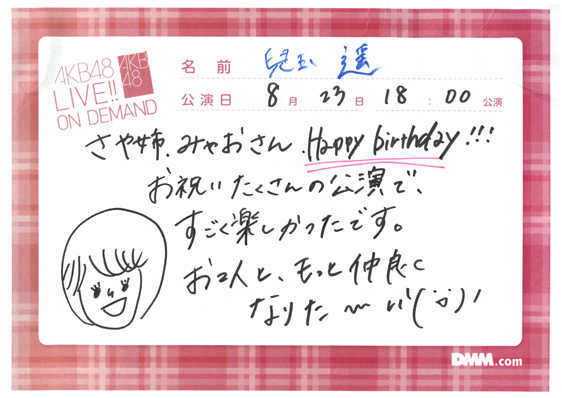 AKB48
LIVE!!
ON DEMAND
AKB
48
名前 兒玉 遥
公演日 8月23日 18:00公演
さや姉、みゃおさん、Happy birthday!!!
お祝いたくさんの公演で、
すごく楽しかったです。
お2人と、もっと仲良く
なりた〜い(¨)ノ
DMM.com